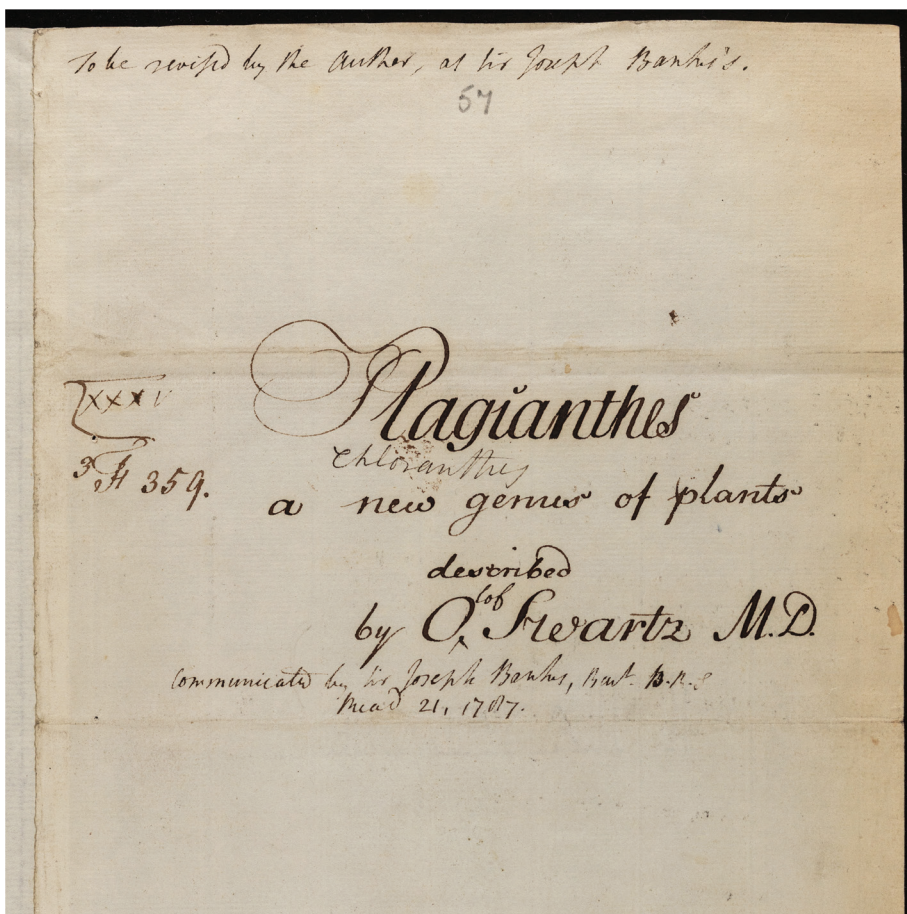 To be revised by the Author, at Sir Joseph Banks's.
57
XXXV
Plagianthes
Chloranthus
359.
a new genus of plants
described
by Olof Swartz M.D.
Communicated by Sir Joseph Banks, Bart. P.R.S
Read 21, 1787.